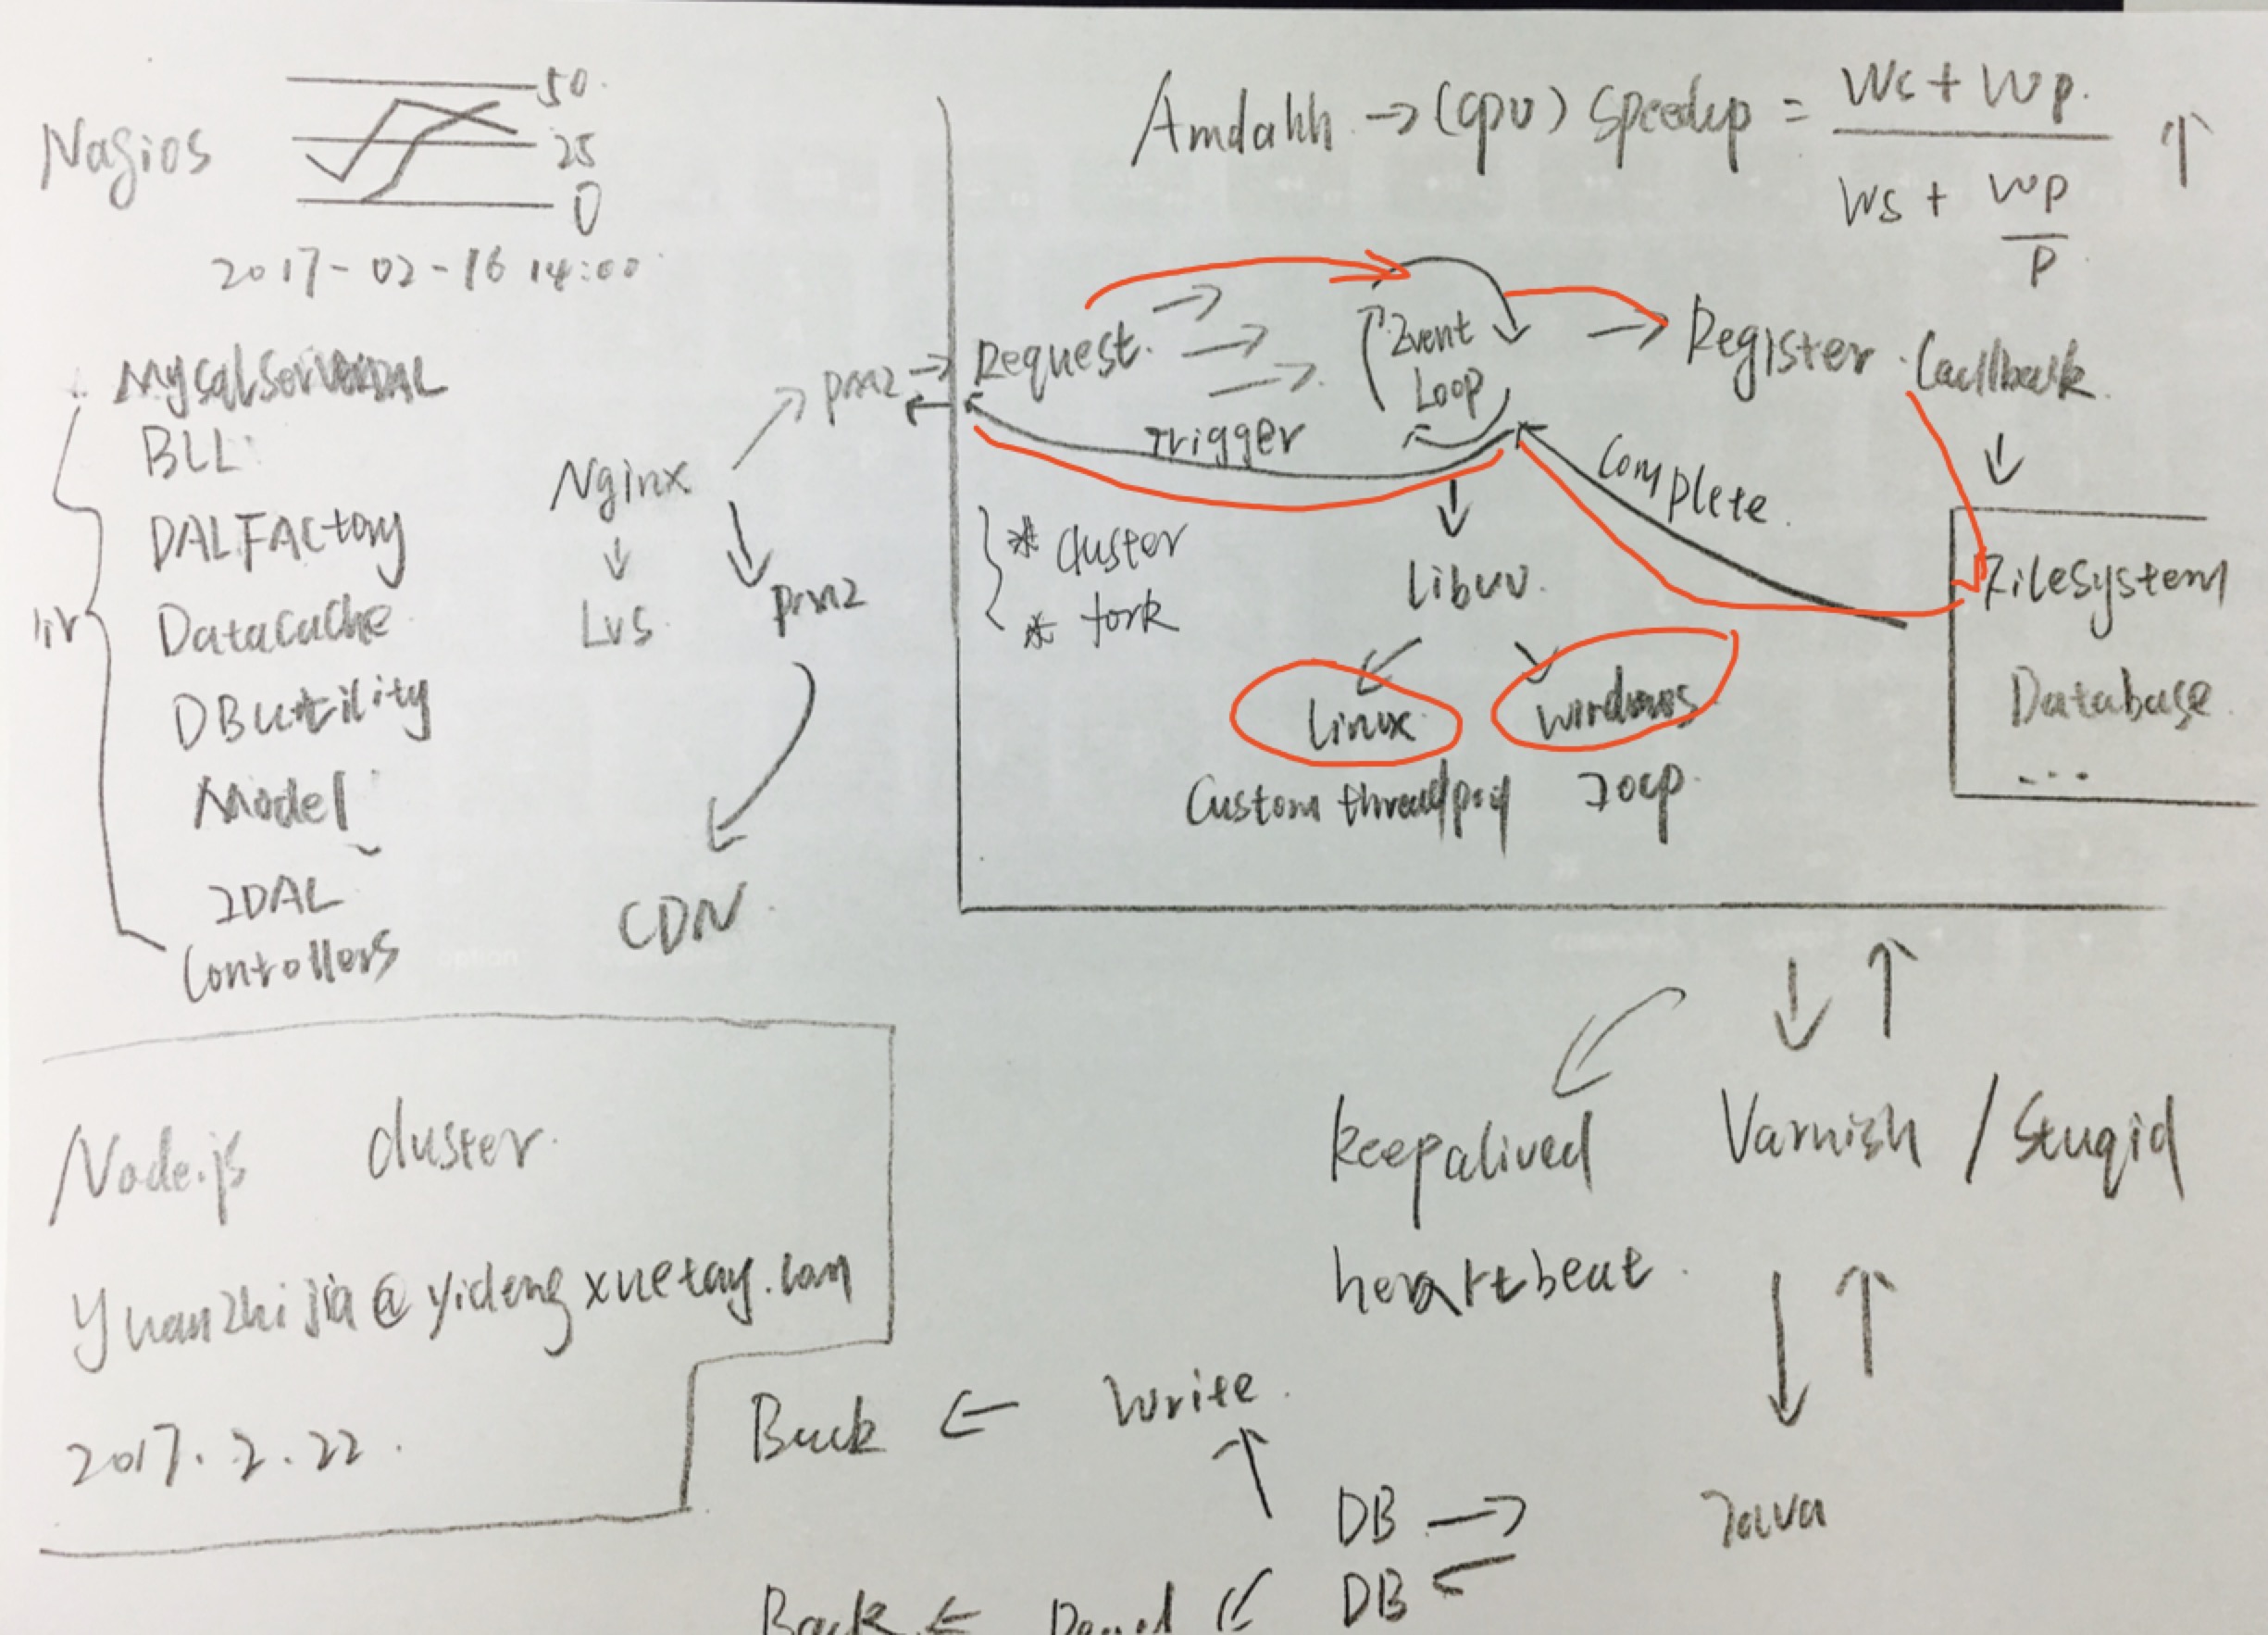 Nagios
50
25
0
2017-02-16 14:00
MysqlServerDAL
BLL
DALFActory
Datacache
DButility
Model
IDAL
Controllers
Nginx
Lvs
pm2
pm2
CDN
Amdahh → (cpu) Speedup = Ws + Wp / Ws + Wp / P ↑
Request
Event
Loop
Register Callback
Trigger
Complete
* cluster
* fork
Libuv
Linux
windows
Custom threadpool
Iocp
Filesystem
Database
...
keepalived
heartbeat
Varnish / Stuqid
Node.js cluster
Yuanzhijia@yidengxuetang.com
2017.2.22.
Back ← write
DB → Java
DB ←
Back ←